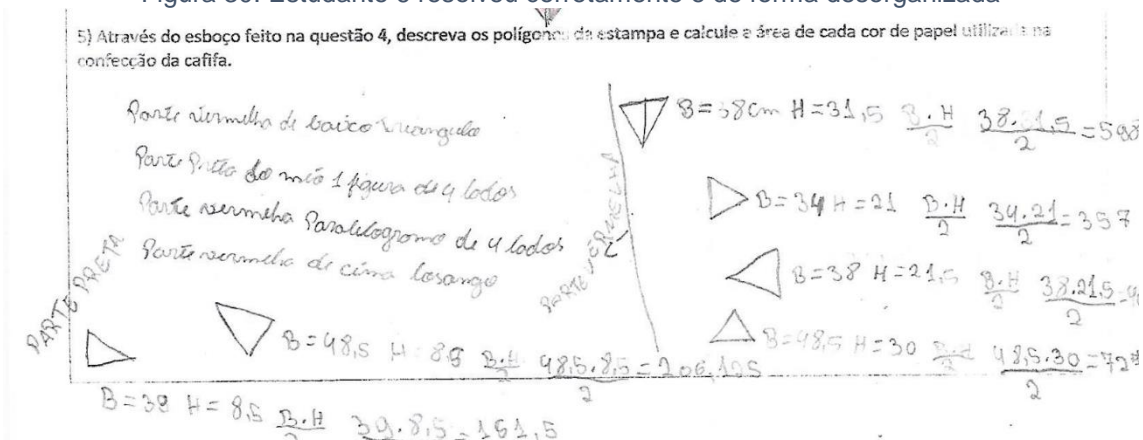 5) Através do esboço feito na questão 4, descreva os polígonos da estampa e calcule a área de cada cor de papel utilizada na
confecção da cafifa.
Parte vermelha de baixo triangulo
Parte Preta do meio 1 figura de 4 lados
Parte vermelha Paralelogramo de 4 lados
Parte vermelha de cima losango
PARTE PRETA
B=48,5 H=8,5 B.H/2 48,5.8,5/2=206,125
B=38 H=8,5 B.H/2
PARTE VERMELHA
B=38cm H=31,5 B.H/2 38.31,5/2=598
B=34 H=21 B.H/2 34.21/2=357
B=38 H=21,5 B.H/2 38.21,5/2
B=48,5 H=30 B.H/2 48,5.30/2